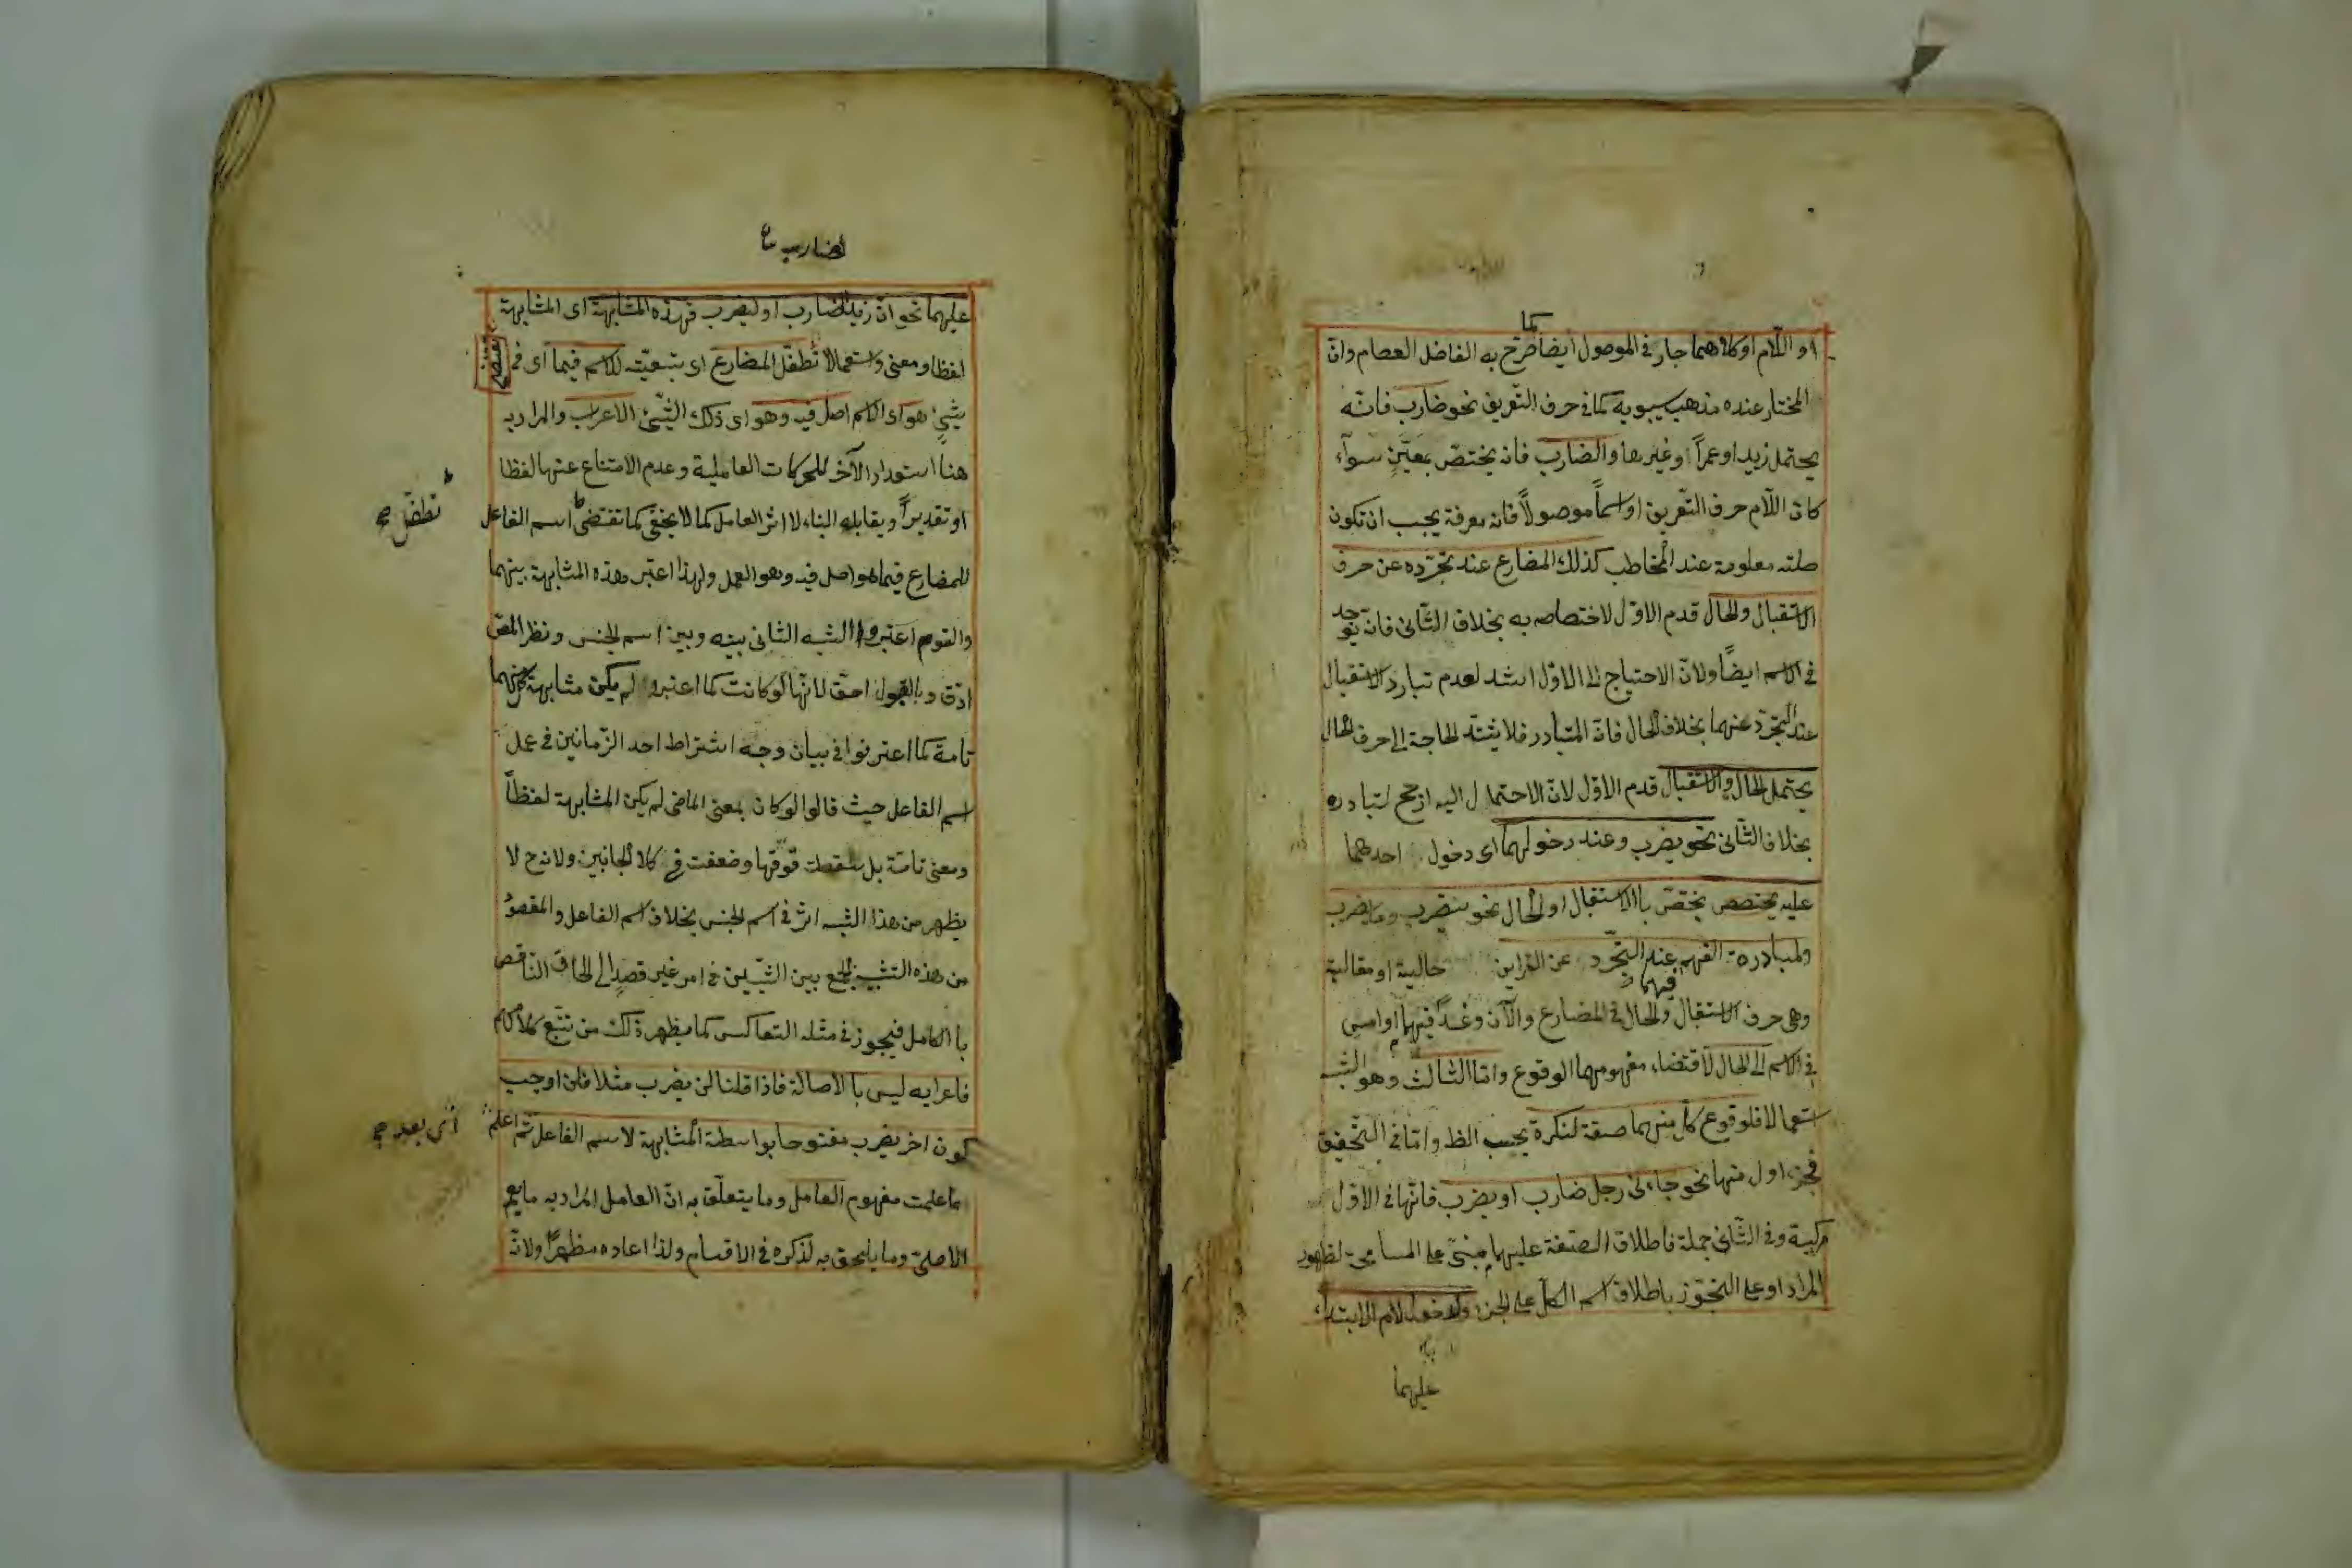 كما
او اللّام او كلاهما جار فى الموصول ايضا صرّح به الفاضل العصام وانّ
المختار عنده مذهب سيبويه كما فى حرف التّعريف نحو ضارب فانّه
يحتمل زيدا وعمراً وغيرهما والضارب فانه يختصّ بمعيّنٍ سوآء
كان اللّام حرف التّعريف او اسماً موصولاً فانه معرفة يجب ان تكون
صلته معلومة عند المخاطب كذلك المضارع عند تجرّده عن حرف
الاستقبال والحال قدم الاوّل لاختصاصه به بخلاف الثّانى فانّه يوجد
فى الاسم ايضًا ولانّ الاحتياج الى الاوّل اشد لعدم تبادر الاستقبال
عند التجرّد عنهما بخلاف الحال فانّه المتبادر فلا يشتد الحاجة الى حرف الحال
يحتمل الحال والاستقبال قدم الاوّل لانّ الاحتمال اليه ارجح لتبادره
بخلاف الثّانى نحو يضرب وعند دخولهما اى دخول احدهما
عليه يختصص يختصّ بالاستقبال او الحال نحو سيضرب وما يضرب
ولمبادرة الفهم عند التّجرّد عن القراين حالية او مقالية
فيهما
وهى حرف الاستقبال والحال فى المضارع والآن وغدًا فيهما او امس
فى الاسم الى الحال لاقتضاء مفهومهما الوقوع وامّا الثالث وهو الشبه
استعمالا فلوقوع كل منهما صفة لنكرة بحسب الظ وامّا فى التّحقيق
فجزء اول منها نحو جاءنى رجل ضارب او يضرب فانّها فى الاوّل
مركبة وفى الثّانى جملة فاطلاق الصّفة عليهما مبنىّ على المسامحة لظهور
المراد او على التّجوّز باطلاق اسم الكلّ على الجزء ولدخول لام الابتداء
عليهما
لضارب
عليهما نحو انّ زيدا لضارب او ليضرب فهذه المشابهة اى المشابهة
لفظا ومعنى واستعمالا تطفّل المضارع اى بتبعيّته للاسم فيما اى فى
شيئ هو اى الاسم اصل فيه وهو اى ذلك الشّيئ الاعراب والمراد به
هنا استعداد الآخر للحركات العاملية وعدم الامتناع عنها لفظا
او تقديراً ويقابله البناء لا اثر العامل كما لا يخفى كما تقتضى اسم الفاعل
تطفّل صح
للمضارع فيما هو اصل فيه وهو العمل ولهذا اعتبر هذه المشابهة بينهما
والقوم اعتبروا الشبه الثانى بينه وبين اسم الجنس ونظر المصّ
ادّق وبالقبول احقّ لانّها لو كانت كما اعتبروا لم يكن مشابهة
تامة كما اعترفوا فى بيان وجه اشتراط احد الزّمانين فى عمل
اسم الفاعل حيث قالوا لو كان بمعنى الماضى لم يكن المشابهة لفظاً
ومعنى تامّة بل سقطت قوّتها وضعفت فى كلا الجانبين ولانه ح لا
يظهر من هذا الشبه اثر فى اسم الجنس بخلاف اسم الفاعل والمقصود
من هذه التشبيه الجمع بين الشّيئين فى امر غير قصدٍ الى الحاق الناقص
بالكامل فيجوز فى مثله التعاكس كما يظهر ذلك من تتبّع كلامهم
فاعرابه ليس بالاصالة فاذا قلنا لن يضرب مثلا فلن اوجب
كون اخر يضرب مفتوحا بواسطة المشابهة لاسم الفاعل ثمّ اعلم
اى بعد صح
ما علمت مفهوم العامل وما يتعلّق به انّ العامل المراد به ما يعم
الاصلىّ وما يلحق به لذكره فى الاقسام ولذا اعاده مظهراً ولانّ